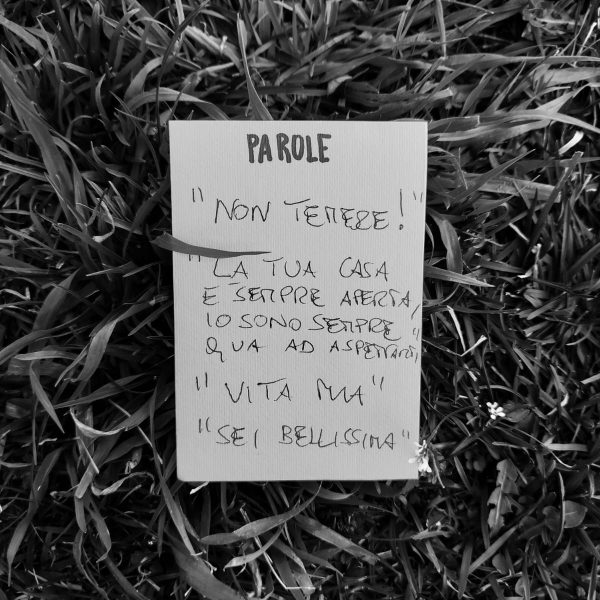 PAROLE
"NON TEMERE!"
"LA TUA CASA
E' SEMPRE APERTA,
IO SONO SEMPRE
QUA AD ASPETTARTI"
"VITA MIA"
"SEI BELLISSIMA"